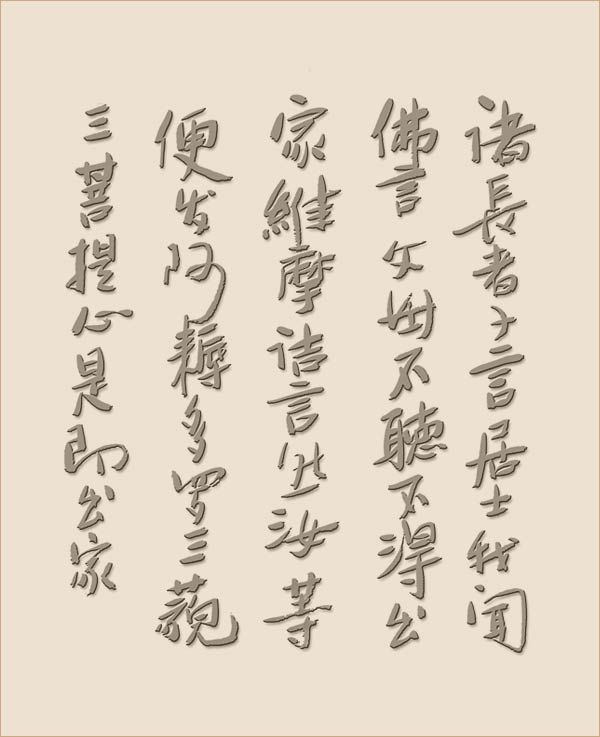 诸長者子言居士我闻
佛言父母不聽不得出
家維摩诘言然汝等
便发阿耨多罗三藐
三菩提心是即出家